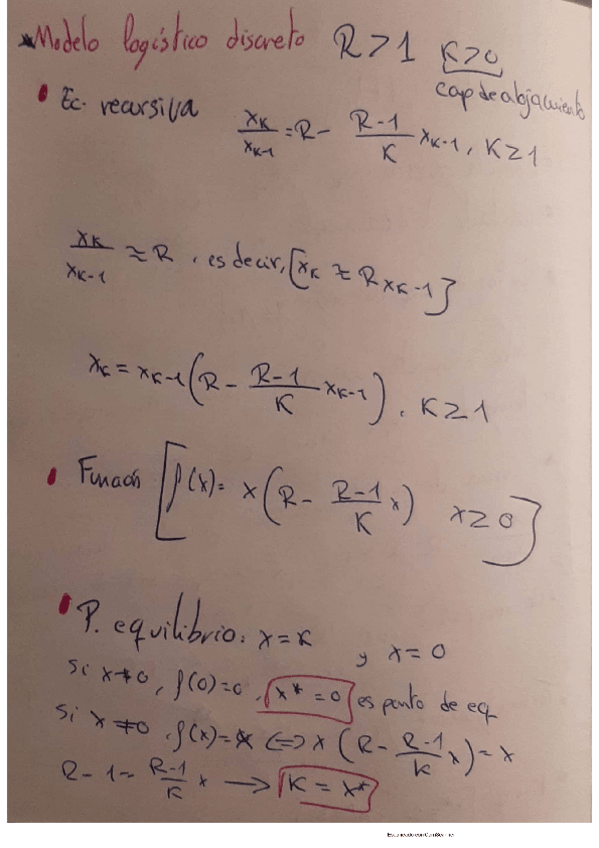 *Modelo logístico discreto R>1 K>0
cap de alojamiento
• Ec. recursiva x_K/x_{K-1} = R - (R-1)/K x_{K-1}, K≥1
x_K/x_{K-1} ≈ R, es decir, [x_K ≈ R x_{K-1}]
x_K = x_{K-1} (R - (R-1)/K x_{K-1}), K≥1
• Función [f(x) = x (R - (R-1)/K x) x≥0]
• P. equilibrio: x=K y x=0
Si x≠0, f(0)=0, x*=0 es punto de eq
Si x≠0, f(x)=x <=> x (R - (R-1)/K x) = x
R-1 = (R-1)/K x → K = x*
Escaneado con CamScanner